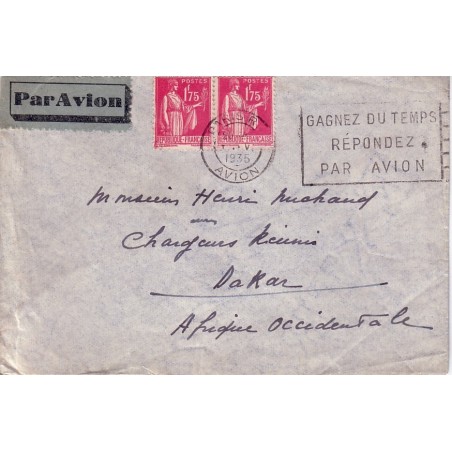 Par Avion
POSTES POSTES
1F75 1F75
RÉPUBLIQUE FRANÇAISE RÉPUBLIQUE FRANÇAISE
1935
AVION
GAGNEZ DU TEMPS
RÉPONDEZ
PAR AVION
Monsieur Henri Michaud
Chargeurs Réunis
Dakar
Afrique Occidentale